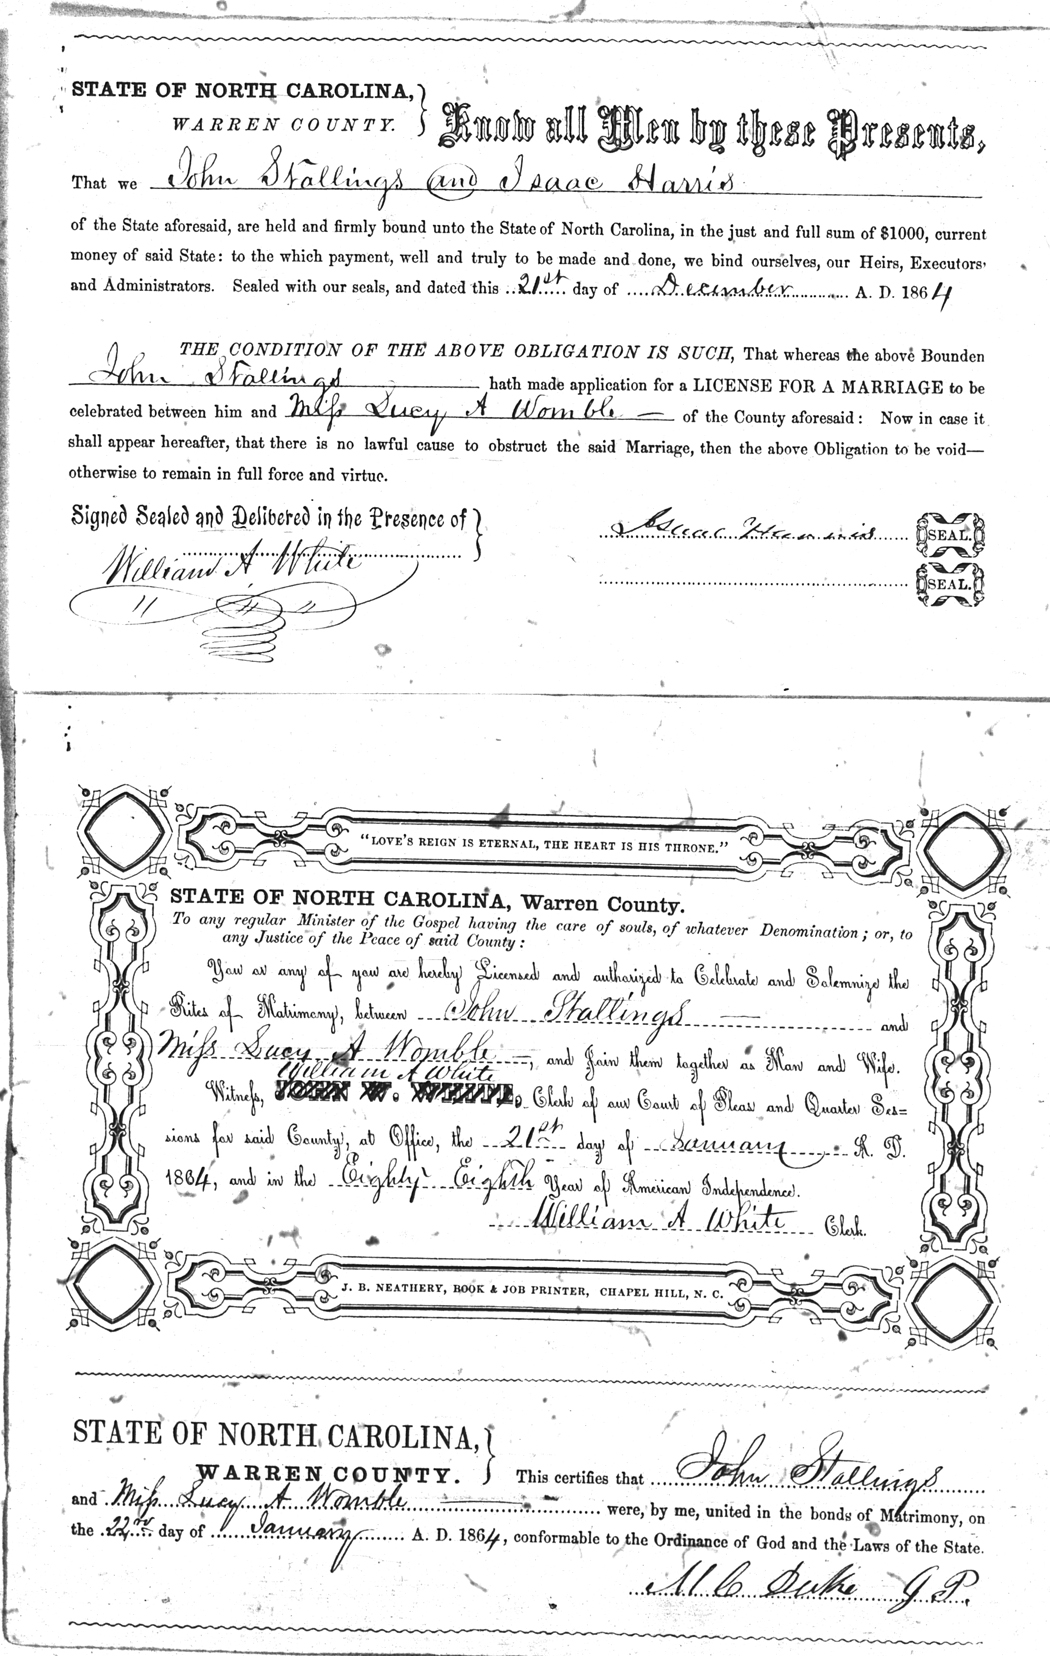 STATE OF NORTH CAROLINA,
WARREN COUNTY.
Know all Men by these Presents,
That we John Stallings and Isaac Harris
of the State aforesaid, are held and firmly bound unto the State of North Carolina, in the just and full sum of $1000, current
money of said State: to the which payment, well and truly to be made and done, we bind ourselves, our Heirs, Executors
and Administrators. Sealed with our seals, and dated this 21st day of December A. D. 1864
THE CONDITION OF THE ABOVE OBLIGATION IS SUCH, That whereas the above Bounden
John Stallings hath made application for a LICENSE FOR A MARRIAGE to be
celebrated between him and Miss Lucy A Womble — of the County aforesaid: Now in case it
shall appear hereafter, that there is no lawful cause to obstruct the said Marriage, then the above Obligation to be void—
otherwise to remain in full force and virtue.
Signed Sealed and Delivered in the Presence of
Isaac Harris SEAL.
William A White
SEAL.
"LOVE'S REIGN IS ETERNAL, THE HEART IS HIS THRONE."
STATE OF NORTH CAROLINA, Warren County.
To any regular Minister of the Gospel having the care of souls, of whatever Denomination; or, to
any Justice of the Peace of said County:
You or any of you are hereby Licensed and authorized to Celebrate and Solemnize the
Rites of Matrimony, between John Stallings — and
Miss Lucy A Womble —, and Join them together as Man and Wife.
William A White
Witness, JOHN W. WHITE, Clerk of our Court of Pleas and Quarter Ses=
sions for said County, at Office, the 21st day of January A. D.
1864, and in the Eighty Eighth Year of American Independence.
William A White Clerk.
J. B. NEATHERY, BOOK & JOB PRINTER, CHAPEL HILL, N. C.
STATE OF NORTH CAROLINA,
WARREN COUNTY.
This certifies that John Stallings
and Miss Lucy A Womble — were, by me, united in the bonds of Matrimony, on
the 22nd day of January A. D. 1864, conformable to the Ordinance of God and the Laws of the State.
M C Duke J. P.